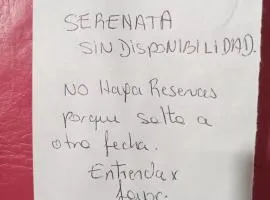 SERENATA
SIN DISPONIBILIDAD.
NO Haga Reservas
porque salta a
otra fecha.
Entienda x
favor.